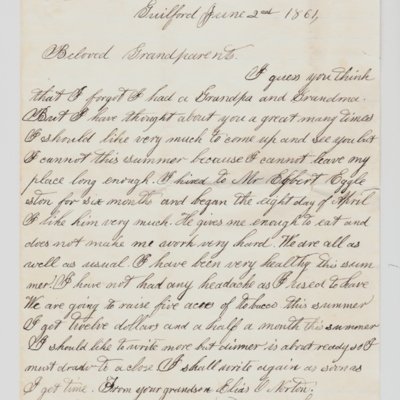 Guilford June 2nd 1861
Beloved Grandparents.
I guess you think
that I forgot I had a Grandpa and Grandma.
But I have thought about you a great many times
I should like very much to come up and see you but
I cannot this summer because I cannot leave my
place long enough. I hired to Mr Egbert Eggle
ston for six months and began the eight day of April
I like him very much. He gives me enough to eat and
does not make me work very hard. We are all as
well as usual I have been very healthy this sum
mer. I have not had any headache as I used to have
We are going to raise five acres of tobacco this summer
I get twelve dollars and a half a month this summer
I should like to write more but dinner is about ready so I
must draw to a close I shall write again as soon as
I get time. From your grandson Elias Norton